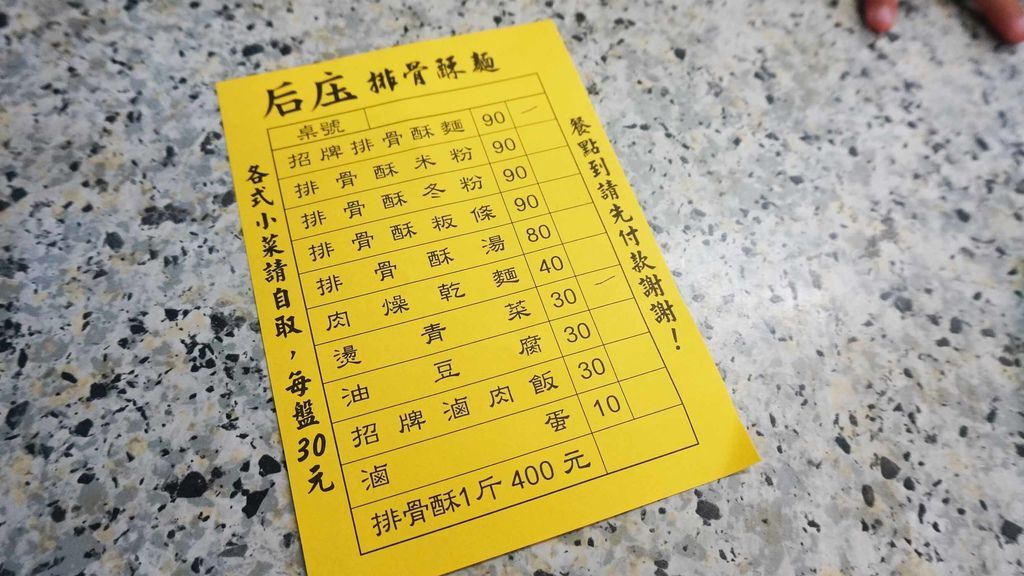 后庄 排骨酥麵
桌號
招牌排骨酥麵 90 一
排骨酥米粉 90
排骨酥冬粉 90
排骨酥板條 90
排骨酥湯 80
肉燥乾麵 40
燙青菜 30 一
油豆腐 30
招牌滷肉飯 30
滷蛋 10
排骨酥1斤400元
各式小菜請自取，每盤30元
餐點到請先付款謝謝！